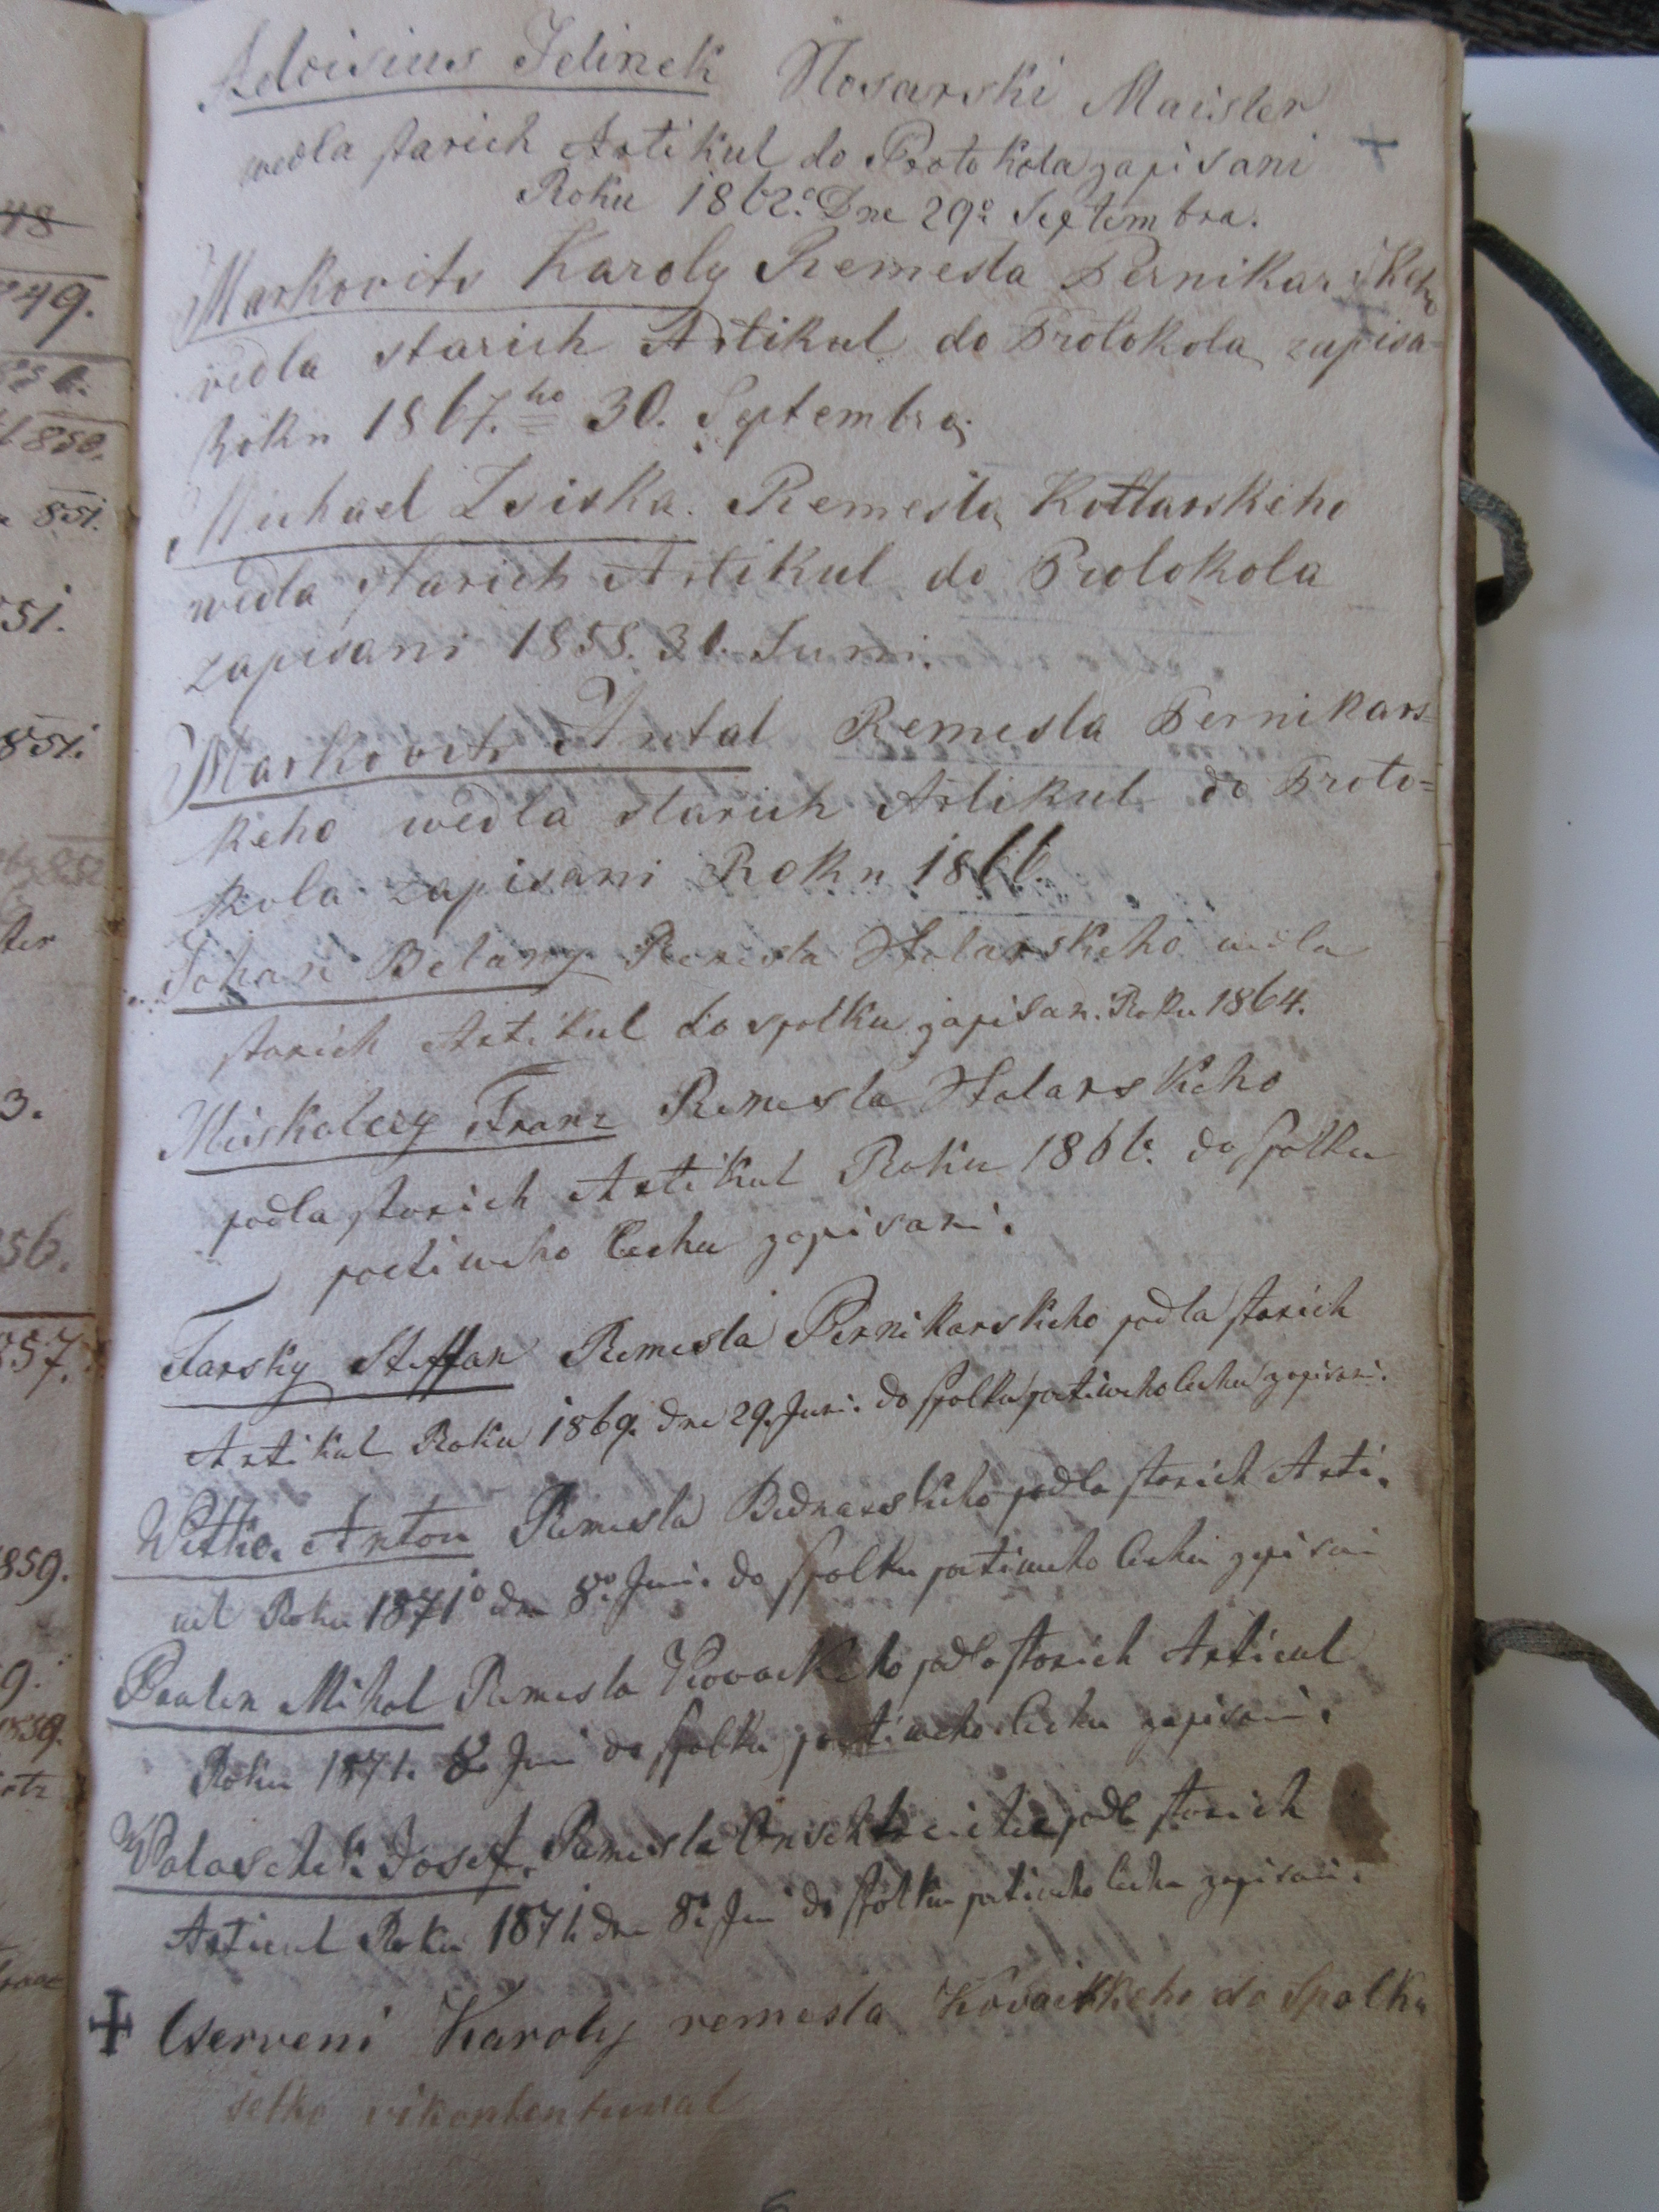 48
849.
1850.
851.
851.
ter
3.
56.
857.
859.
9.
Adoisius Jelinek Nosarski Maisler
wedla starich Artikul do Protokola zapisani
Roku 1862.° Dne 29° Septembra.
Markovits Karoly Remesla Pernikarskeho
vedla starich Artikul do Protokola zapisa-
Roku 1867.ho 30. Septembra.
Michael Lsiska. Remesla Kotlarskeho
wedla starich Artikul do Protokola
zapisani 1858. 31. Juni.
Markovits Antal Remesla Pernikars=
keho wedla starich Artikul do Proto=
kola zapisani Roku 1866.
Johan Belany Remesla Stolarskeho wedla
starich Artikul do spolku zapisan. Roku 1864.
Miskolczy Franz Remesla Stolarskeho
podla starich Artikul Roku 1866. do spolku
poctiweho Cechu zapisani.
Farsky Steffan Remesla Pernikarskeho podla starich
Artikul Roku 1869. dne 29. Juni. do spolku poctiweho Cechu zapisani.
Anton Remesla Bednarskeho podla starich Arti.
cul Roku 1871° dne 8° Juni. do spolku poctiweho Cechu zapisani
Paulen Mihal Remesla Kovackeho podla starich Articul
Roku 1871. 8° Juni do spolku poctiweho Cechu zapisani.
Walaschek Josef. Remesla podla starich
Articul Roku 1871. dne 8° Juni do spolku poctiweho Cechu zapisani.
Cserveni Karoly remesla Kovačkeho do Spolku
setko vikontentuval